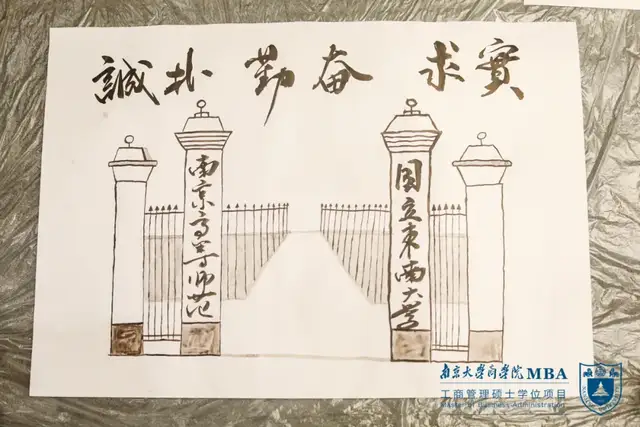 誠朴 勤奋 求實
南京高等师范
国立東南大学
南京大学商学院 MBA
工商管理硕士学位项目
Master of Business Administration